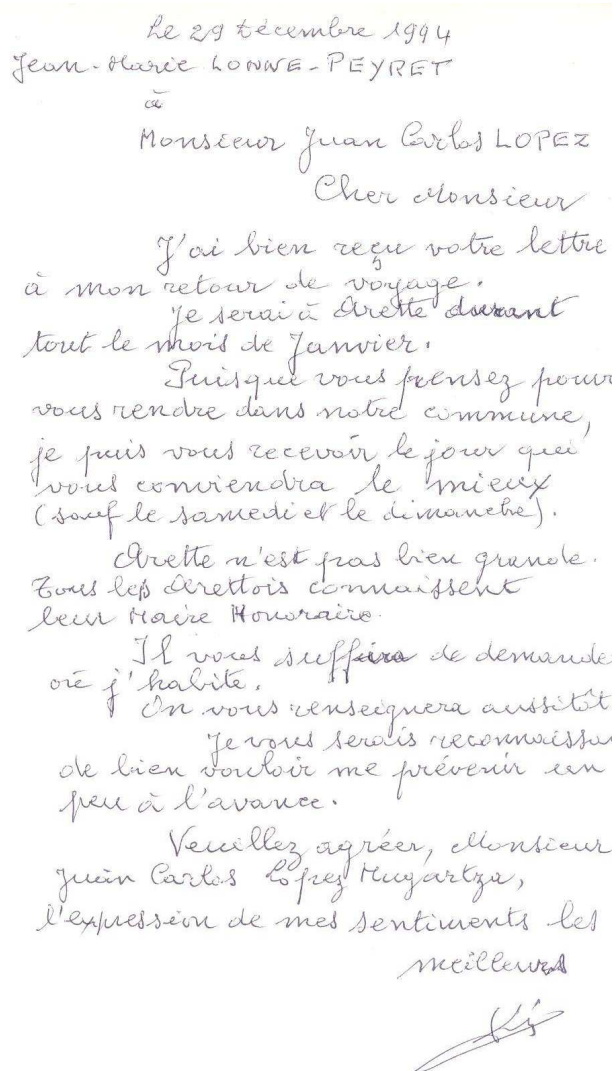 Le 29 Décembre 1994
Jean-Marie LONNE-PEYRET
à
Monsieur Juan Carlos LOPEZ
Cher Monsieur
J'ai bien reçu votre lettre
à mon retour de voyage.
Je serai à Arette durant
tout le mois de Janvier.
Puisque vous pensez pouv
vous rendre dans notre commune,
je puis vous recevoir le jour qui
vous conviendra le mieux
(sauf le samedi et le dimanche).
Arette n'est pas bien grande.
Tous les Arettois connaissent
leur Maire Honoraire.
Il vous suffira de demande
où j'habite.
On vous renseignera aussitôt
Je vous serais reconnaissa
de bien vouloir me prévenir un
peu à l'avance.
Veuillez agréer, Monsieur
Juan Carlos López Mugartza,
l'expression de mes sentiments les
meilleurs